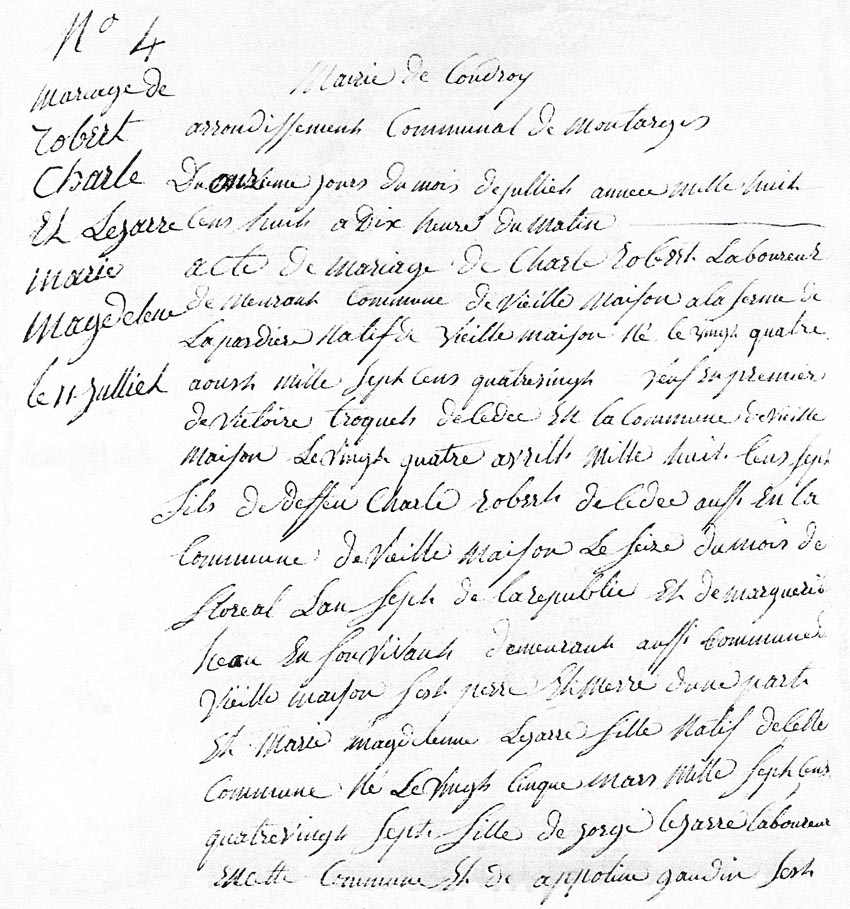 No 4
mariage de
robert
Charle
Et Lezarre
marie
Magdelene
le 11 Julliet
Mairie de Coudroy
arrondissement Communal de montargis
Du onzieme jours du mois de julliet annee mille huit
Cens huit a Dix heure du Matin
acte de mariage de Charle robert Laboureur
demeurant Commune de Vieille Maison a la ferme de
Lapardiere Natif de Vieille maison Né le vingt quatre
aoust mille sept Cens quatrevingt veuf En premier
de Victoire troquet decedee En la Commune de Vieille
Maison Le Vingt quatre avrill Mille huit Cens sept
fils de deffeu Charle robert decedee aussi En la
Commune de Vieille Maison Le seize du mois de
floreal Lan sept de la republie Et de marguerit
heau En son Vivant demeurant aussi Commune d
Vieille maison sest perre Et merre dune part
Et Marie magdelenne Lezarre fille Natif de Cette
Commune Né Le Vingt Cinque Mars Mille sept Cens
quatreVingt sept fille de jorge lezarre laboureur
En Cette Commune Et de appoline gaudin sest